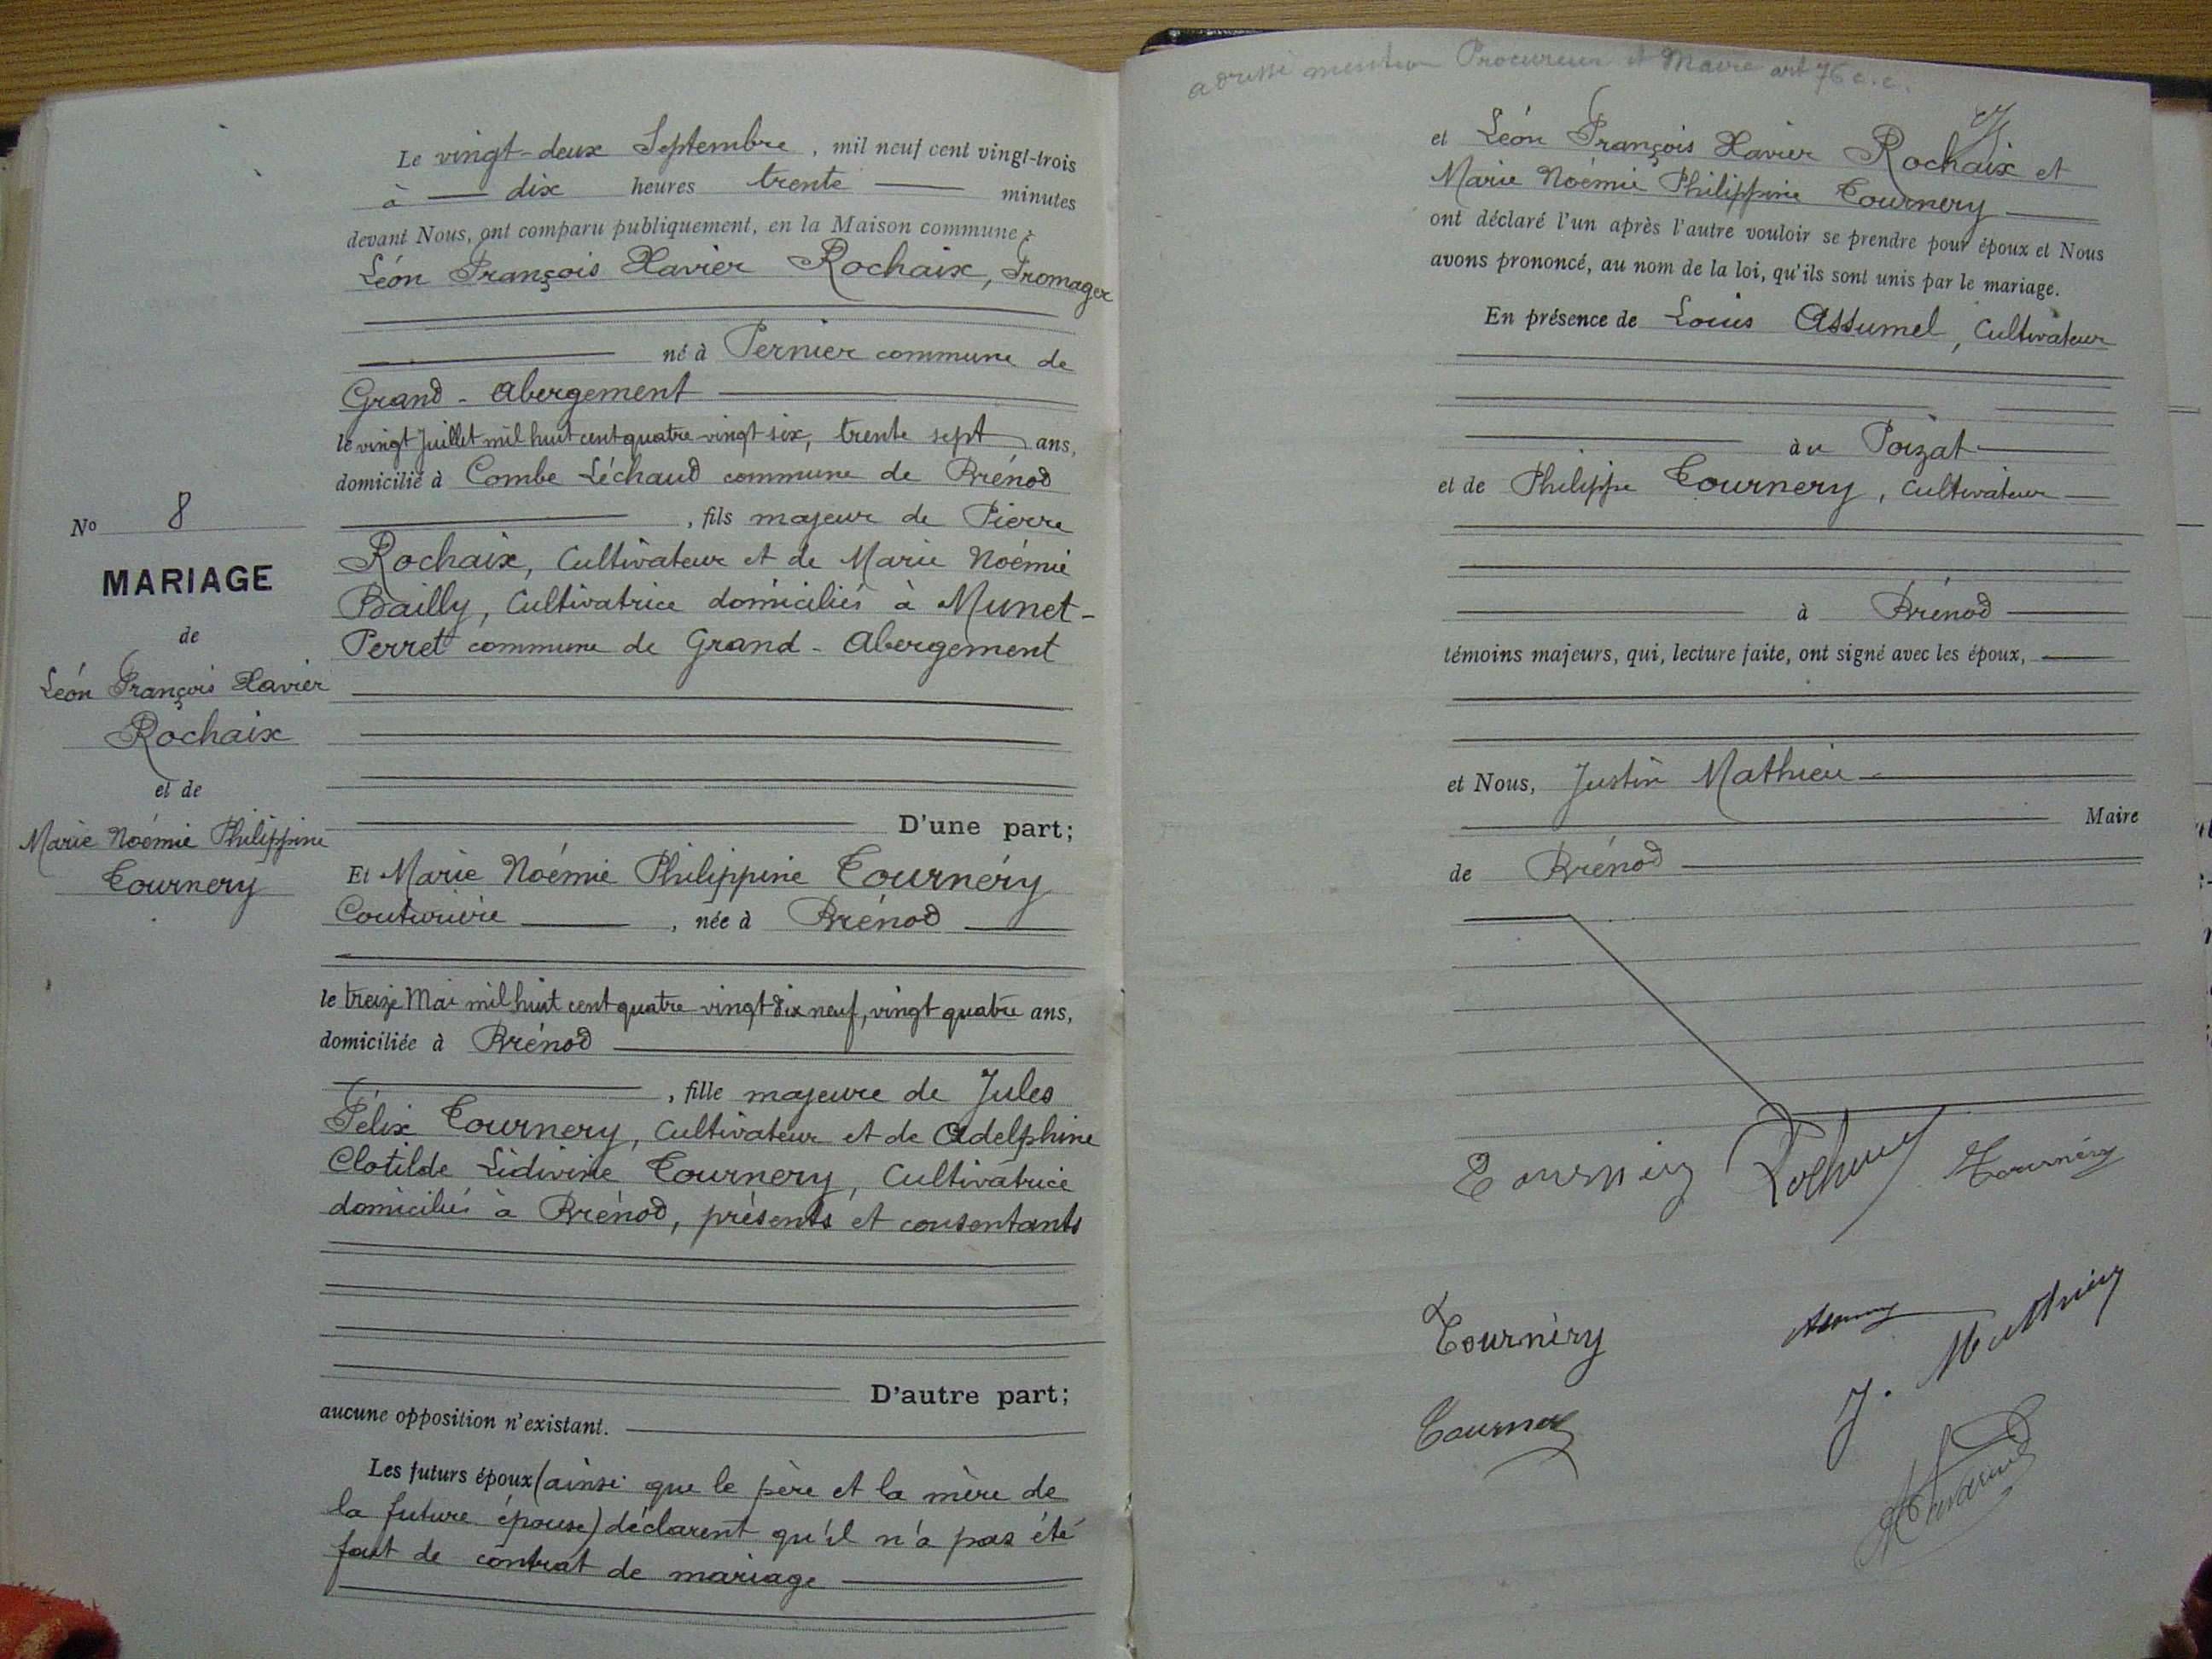 N° 8
MARIAGE
de
Léon François Xavier
Rochaix
et de
Marie Noémie Philippine
Tournery
Le vingt-deux Septembre, mil neuf cent vingt-trois
à dix heures trente minutes
devant Nous, ont comparu publiquement, en la Maison commune :
Léon François Xavier Rochaix, Fromager
né à Pernier commune de
Grand-Abergement
le vingt Juillet mil huit cent quatre-vingt-six, trente sept ans,
domicilié à Combe Léchaud commune de Brénod
, fils majeur de Pierre
Rochaix, Cultivateur et de Marie Noémie
Bailly, Cultivatrice domiciliés à Munet-
Perret commune de Grand-Abergement
D'une part;
Et Marie Noémie Philippine Tournery
Couturière, née à Brénod
le treize Mai mil huit cent quatre-vingt dix neuf, vingt quatre ans,
domiciliée à Brénod
, fille majeure de Jules
Félix Tournery, Cultivateur et de Adelphine
Clotilde Lidivine Tournery, Cultivatrice
domiciliés à Brénod, présents et consentants
D'autre part;
aucune opposition n'existant.
Les futurs époux (ainsi que le père et la mère de
la future épouse) déclarent qu'il n'a pas été
fait de contrat de mariage
adressé mention Procureur et Maire art 76 c.c.
et Léon François Xavier Rochaix et
Marie Noémie Philippine Tournery
ont déclaré l'un après l'autre vouloir se prendre pour époux et Nous
avons prononcé, au nom de la loi, qu'ils sont unis par le mariage.
En présence de Louis Assumel, Cultivateur
au Poizat
et de Philippe Tournery, Cultivateur
à Brénod
témoins majeurs, qui, lecture faite, ont signé avec les époux,
et Nous, Justin Mathieu
Maire
de Brénod
Tournery Rochaix Tournéry
Tournéry
J. Mathieu
Tournery